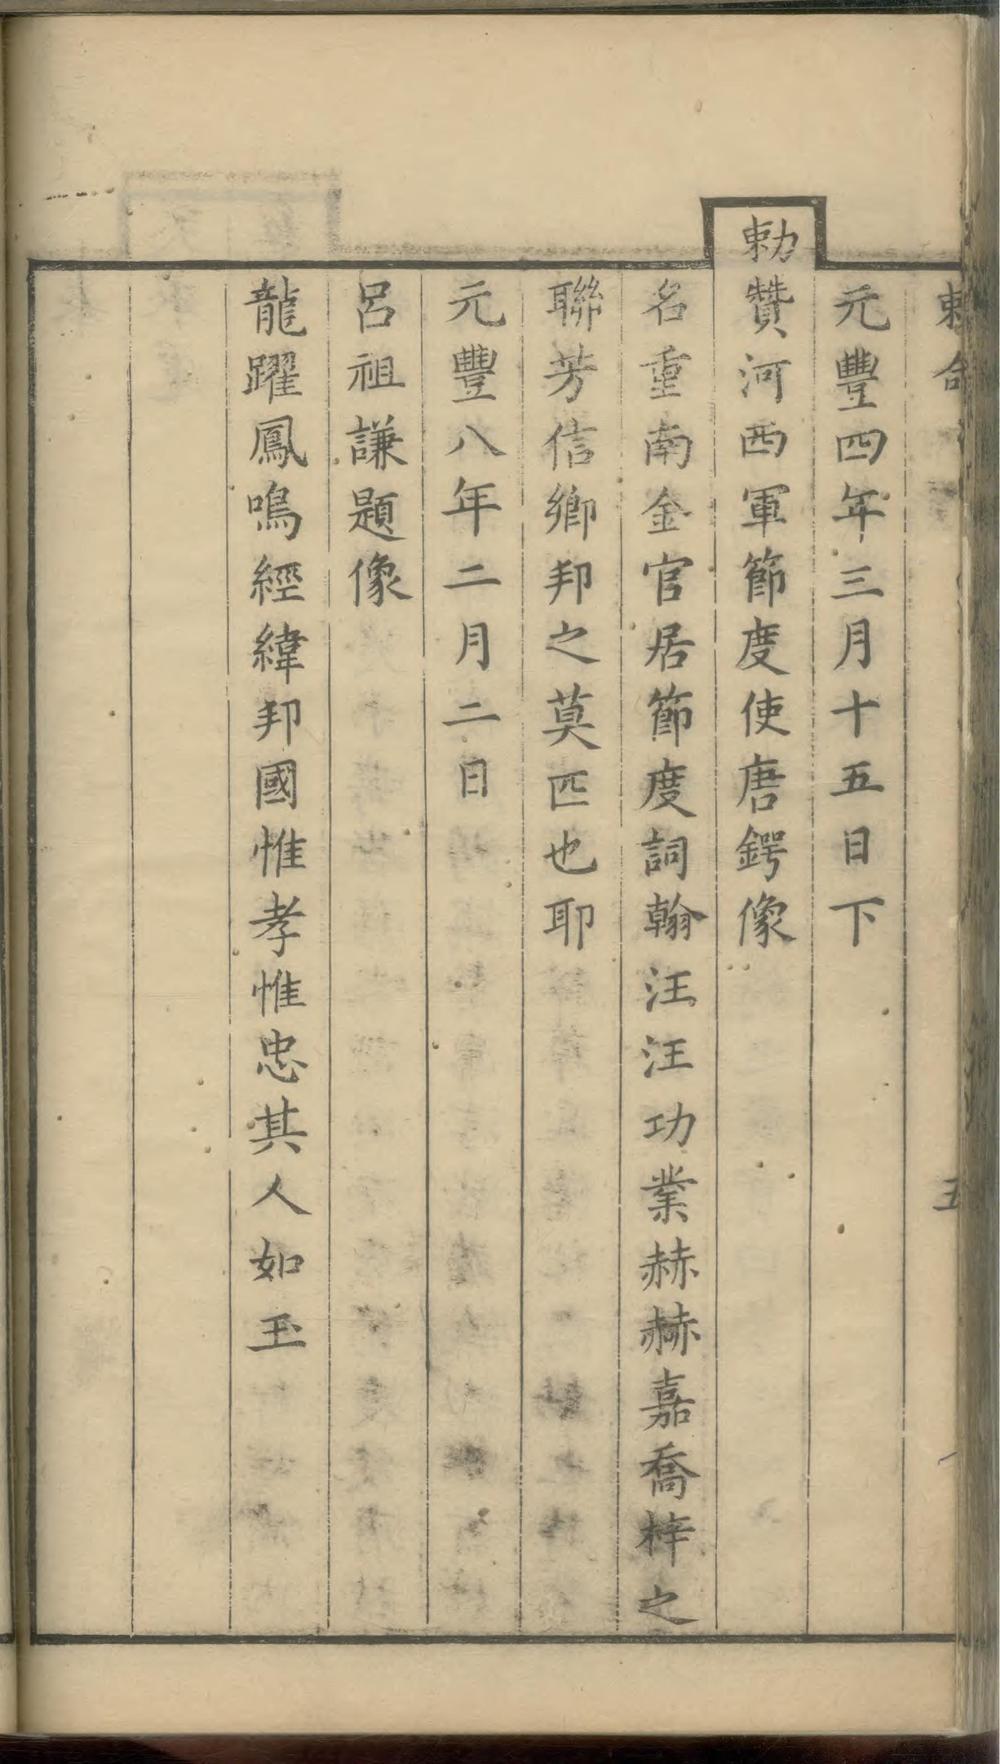 勅命
五
元豐四年三月十五日下
勅贊河西軍節度使唐鍔像
名重南金官居節度詞翰汪汪功業赫赫嘉喬梓之
聯芳信鄉邦之莫匹也耶
元豐八年二月二日
呂祖謙題像
龍躍鳳鳴經緯邦國惟孝惟忠其人如玉